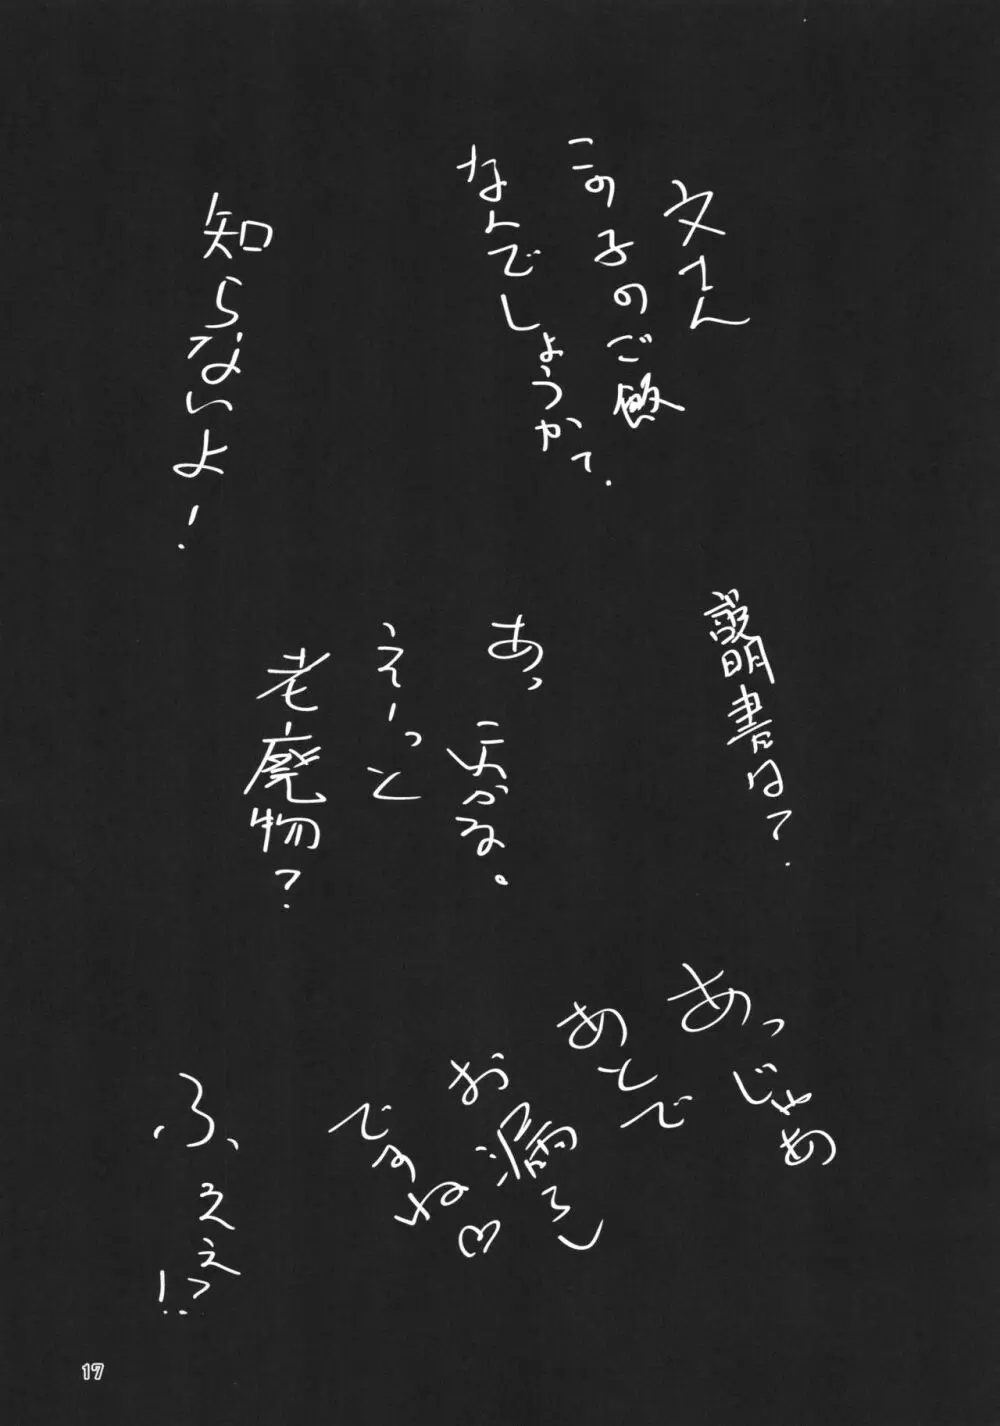 文さん
この子のご飯
なんでしょうか?
知らないよ!
説明書は?
あっ
天かな。
えーっと
老廃物?
あっじゃあ
あとで
お漏らし
ですね♡
ふ、ええ!?
17